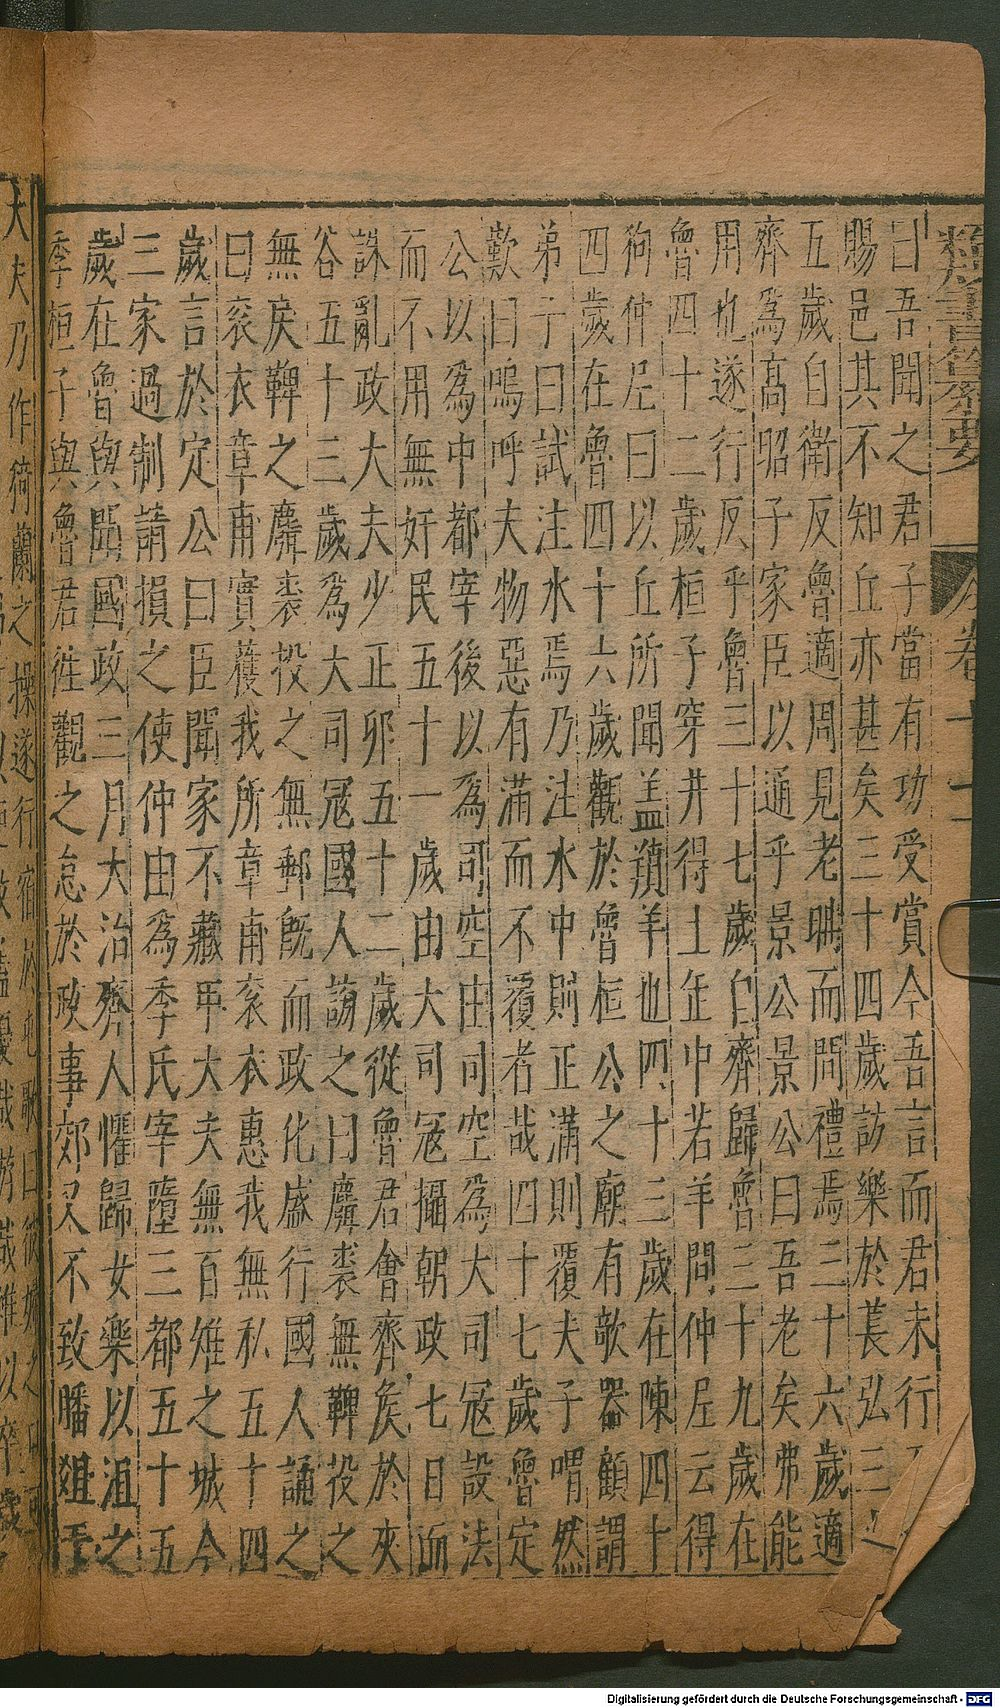 群書備要 卷十二
曰吾聞之君子當有功受賞今吾言而君未行
賜邑其不知丘亦甚矣三十四歲訪樂於萇弘三
五歲自衛反魯適周見老聃而問禮焉三十六歲適
齊為高昭子家臣以通乎景公景公曰吾老矣弗能
用也遂行反乎魯三十七歲自齊歸魯三十九歲在
魯四十二歲桓子穿井得土缶中若羊問仲尼云得
狗仲尼曰以丘所聞盖羵羊也四十三歲在陳四十
四歲在魯四十六歲觀於魯桓公之廟有欹器顧謂
弟子曰試注水焉乃注水中則正滿則覆夫子喟然
歎曰嗚呼夫物惡有滿而不覆者哉四十七歲魯定
公以為中都宰後以為司空由司空為大司寇設法
而不用無奸民五十一歲由大司寇攝朝政七日而
誅亂政大夫少正卯五十二歲從魯君會齊侯於夾
谷五十三歲為大司寇國人謗之曰麛裘無鞸投之
無戾鞸之麛裘投之無郵既而政化盛行國人誦之
曰袞衣章甫實獲我所章甫袞衣惠我無私五十四
歲言於定公曰臣聞家不藏甲大夫無百雉之城今
三家過制請損之使仲由為季氏宰墮三都五十五
歲在魯與聞國政三月大治齊人懼歸女樂以沮之
季桓子與魯君往觀之怠於政事郊又不致膰俎于
大夫乃作猗蘭之操遂行宿於屯歌曰彼婦之口可
Digitalisierung gefördert durch die Deutsche Forschungsgemeinschaft - DFG